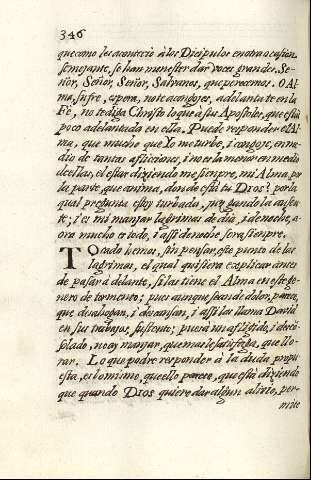 346
que como les aconteciò à los Dicipulos en otra ocasion
semejante, se han menester dar voces grandes. Se-
ñor, Señor, Señor, Salvanos, que perecemos. O Al-
ma, sufre, espera, no te acongojes, adelantate en la
Fe, no te diga Christo lo que à sus Apostoles, que està
poco adelantada en ella. Puede responder el Al-
ma, que mucho que lo me turbe, i congoje, en me-
dio de tantas aflicciones, i no es la menor en medio
de ellas, el estar diziendome siempre, mi Alma, por
la parte, que anima, donde està tu DIOS? por la
qual pregunta estoy turbado, juzgandola ausen-
te; i es mi manjar lagrimas de dia, i de noche, a-
ora mucho es todo, i assi de noche sera siempre.
TOcado hemos, sin pensar, este punto de las
lagrimas, el qual quisiera explicar antes
de passar à delante, si las tiene el Alma en este ge-
nero de tormento; pues aunque sean de dolor, parece,
que desahogan, i descansan, i assi las llama David
en sus trabajos, sustento; pues à un afligido, i desco-
solado, no ay manjar, que mas le satisfaga, que llo-
rar. Lo que podrè responder à la duda propu-
esta, es lo mismo, que ello parece, que està diziendo
que quando DIOS quiere dar algun alivio, per-
mite